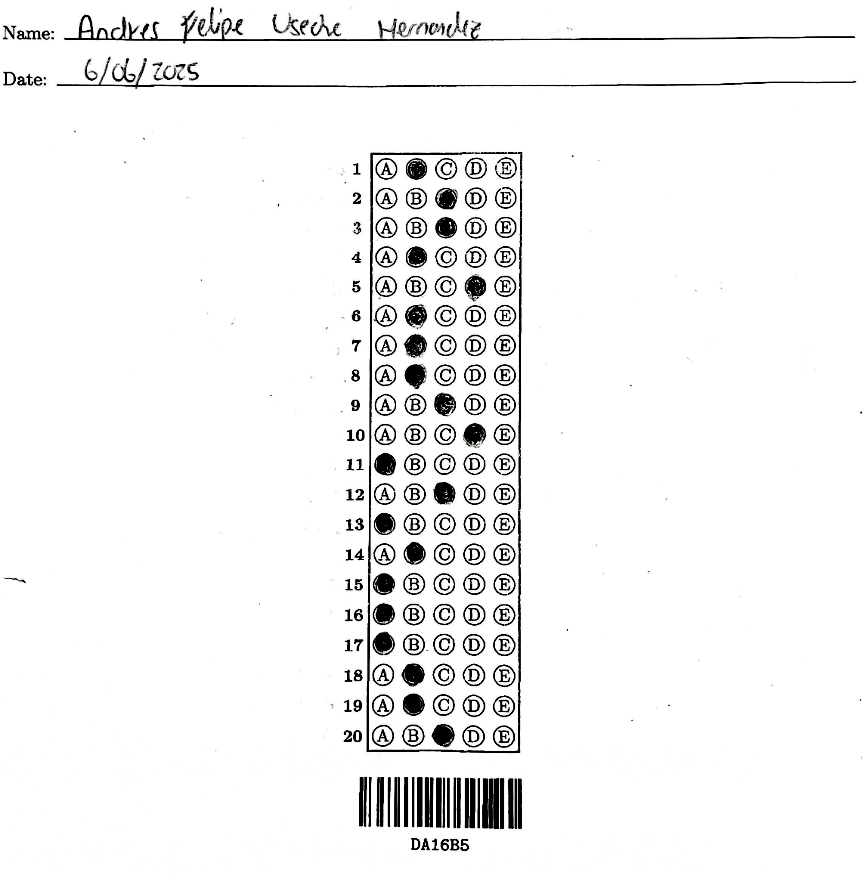 Name: Andres Felipe Useche Hernandez
Date: 6/06/2025
1 A C D E
2 A B D E
3 A B D E
4 A C D E
5 A B C E
6 A C D E
7 A C D E
8 A C D E
9 A B D E
10 A B C E
11 B C D E
12 A B D E
13 B C D E
14 A C D E
15 B C D E
16 B C D E
17 B C D E
18 A C D E
19 A C D E
20 A B D E
DA16B5